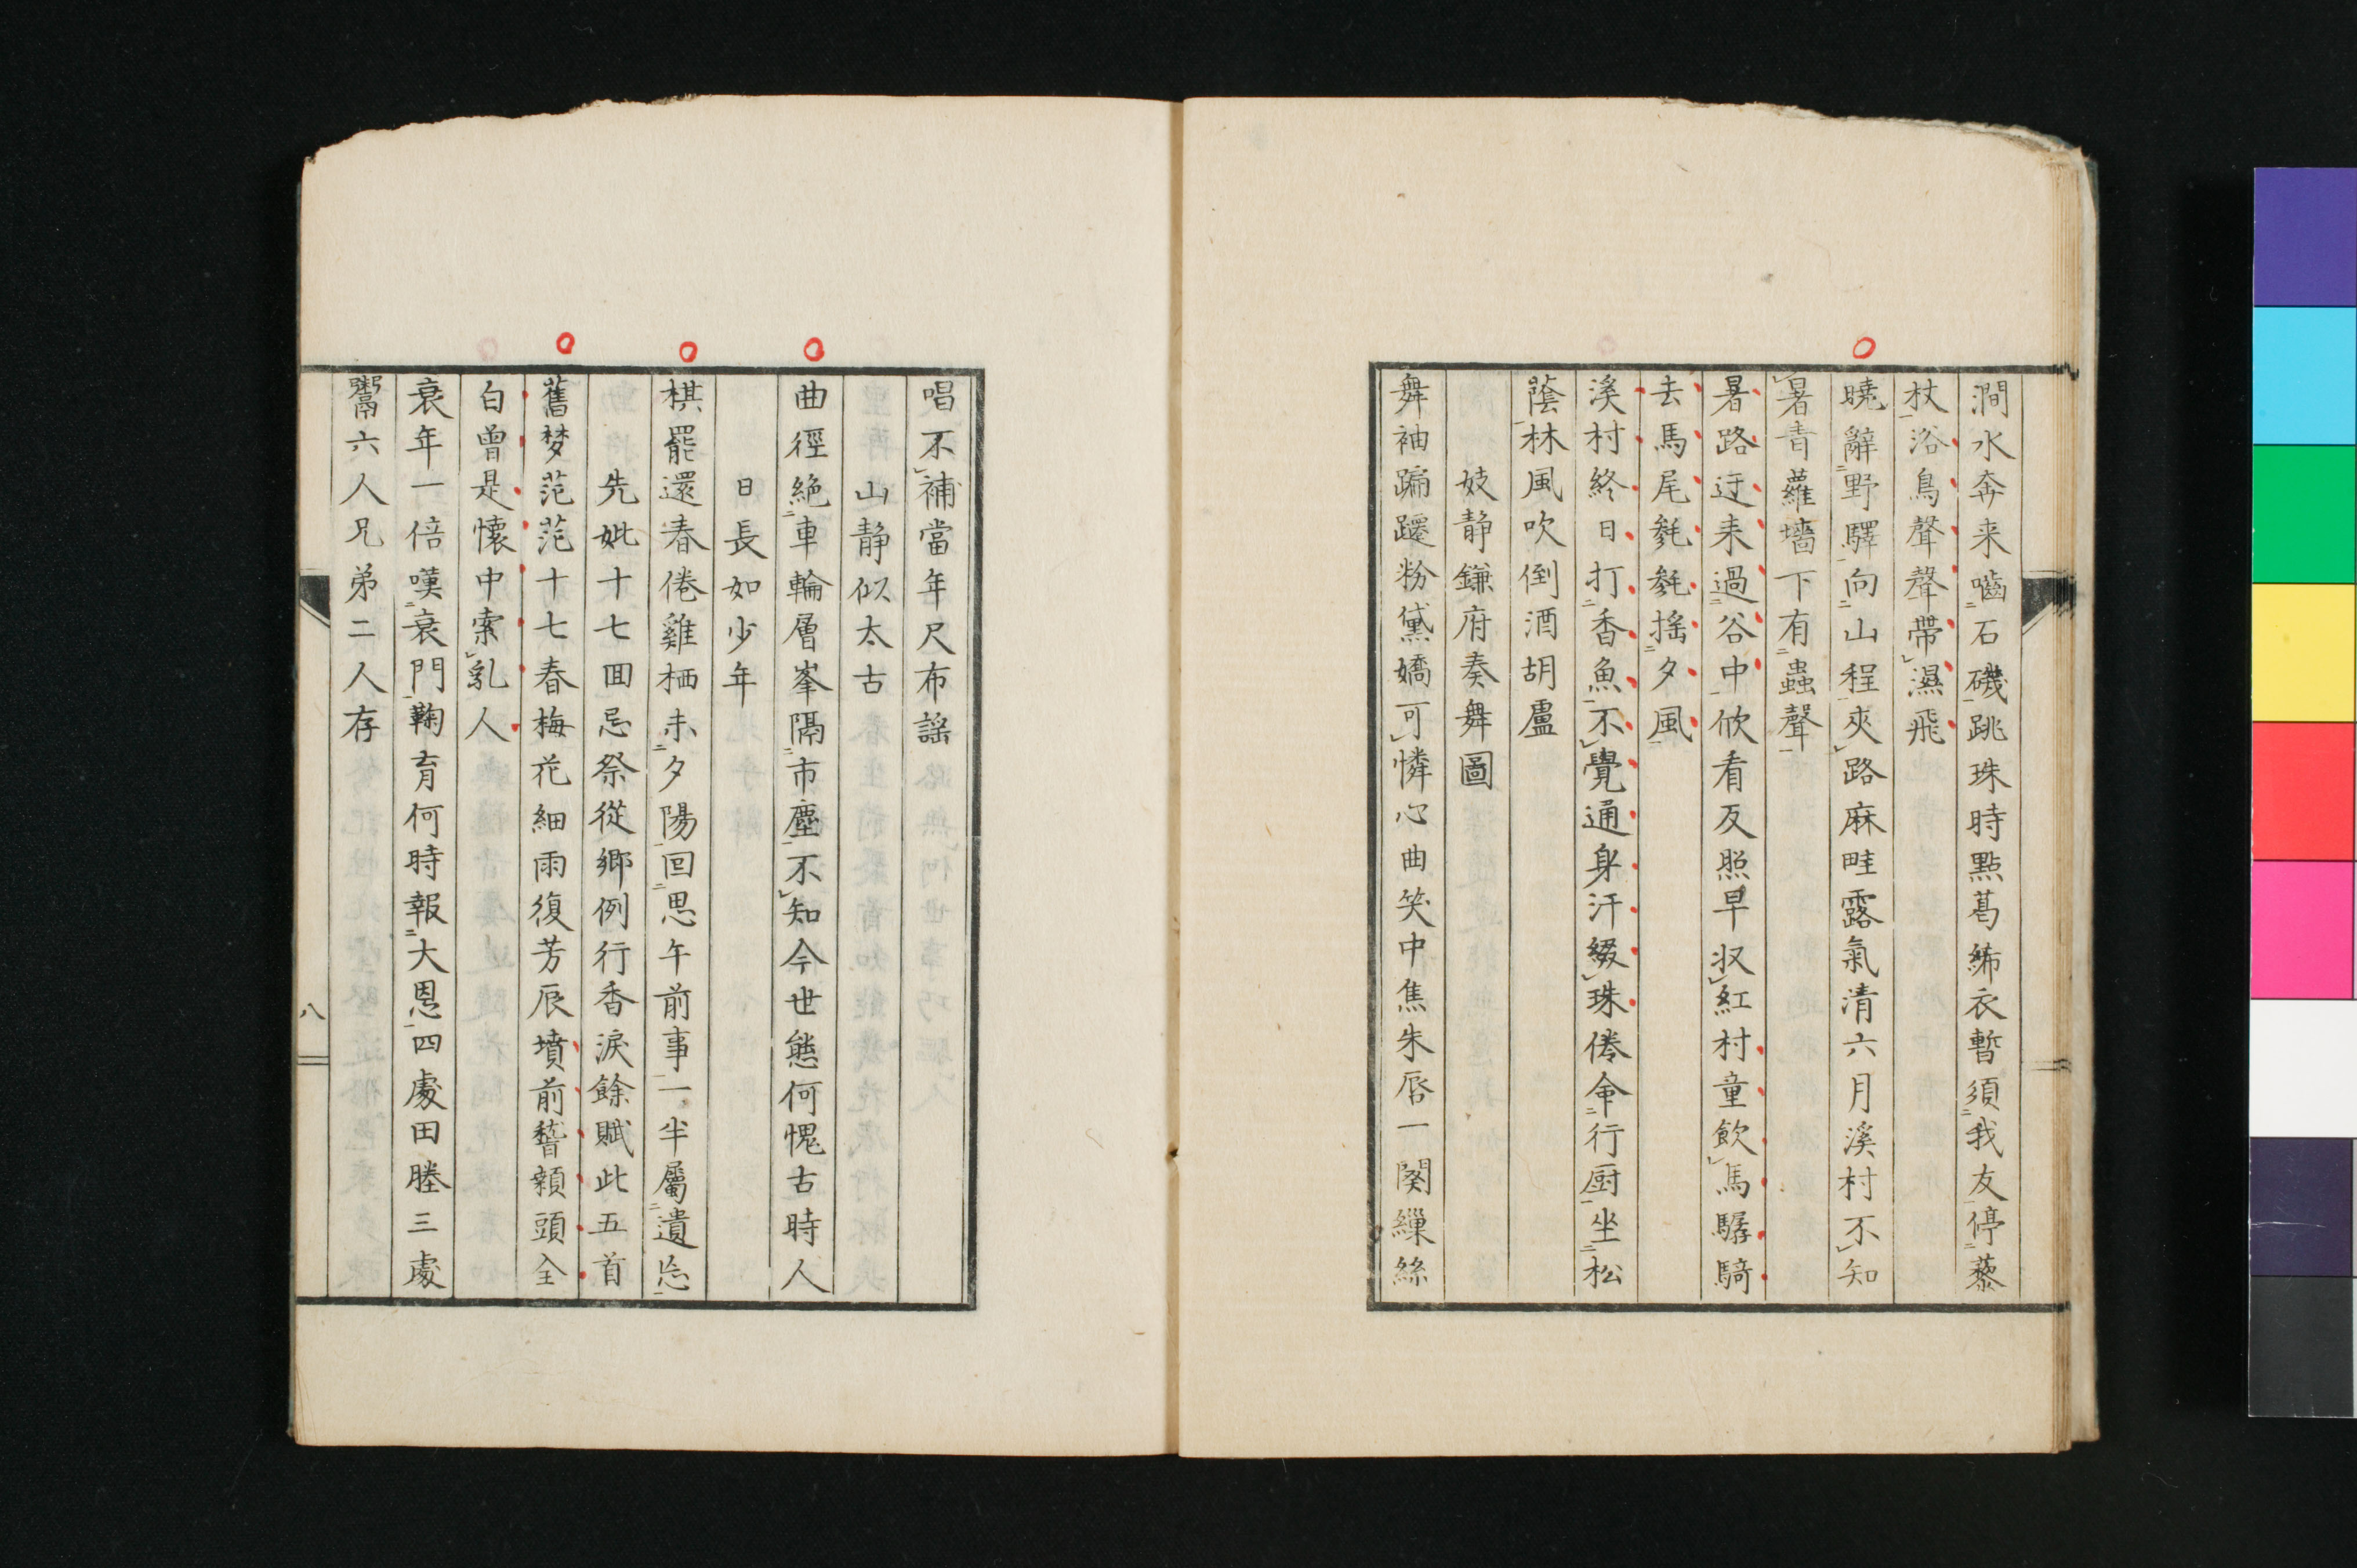 澗水奔来嚙石磯跳珠時點葛絺衣暫須我友停藜
杖浴鳥聲聲帶濕飛
曉辭野驛向山程夾路麻畦露氣清六月溪村不知
暑青蘿墻下有蟲聲
暑路迂来過谷中欣看反照早収紅村童飲馬騵騎
去馬尾毿毿搖夕風
溪村終日打香魚不覺通身汗綴珠倦命行厨坐松
蔭林風吹倒酒胡盧
妓静鎌府奏舞圖
舞袖蹁躚粉黛嬌可憐心曲笑中焦朱唇一闋繅絲
唱不補當年尺布謡
山静似太古
曲徑絶車輪層峯隔市塵不知今世態何愧古時人
日長如少年
棋罷還春倦雞栖未夕陽回思午前事一半屬遺忘
先妣十七回忌祭從鄉例行香涙餘賦此五首
舊梦茫茫十七春梅花細雨復芳辰墳前稽顙頭全
白曾是懷中索乳人
衰年一倍嘆衰門鞠育何時報大恩四處田塍三處
鬻六人兄弟二人存
八